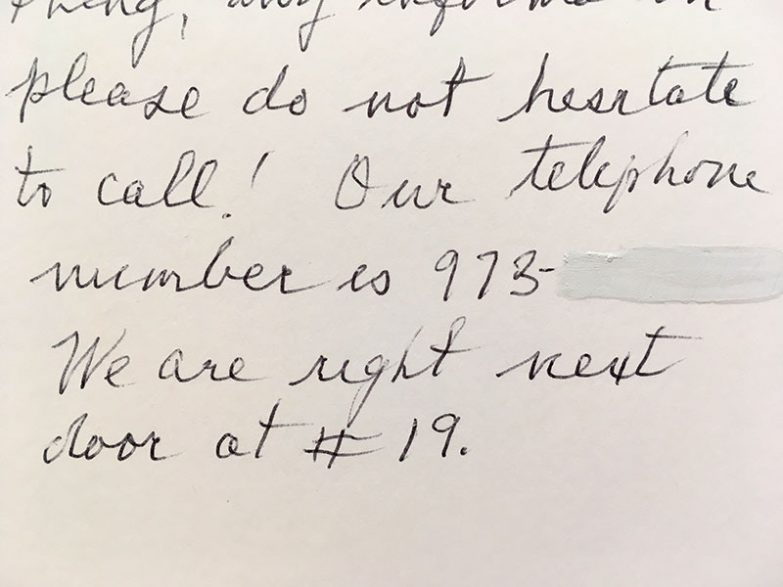 thing, any informa
please do not hesitate
to call! Our telephone
number is 973-
We are right next
door at # 19.